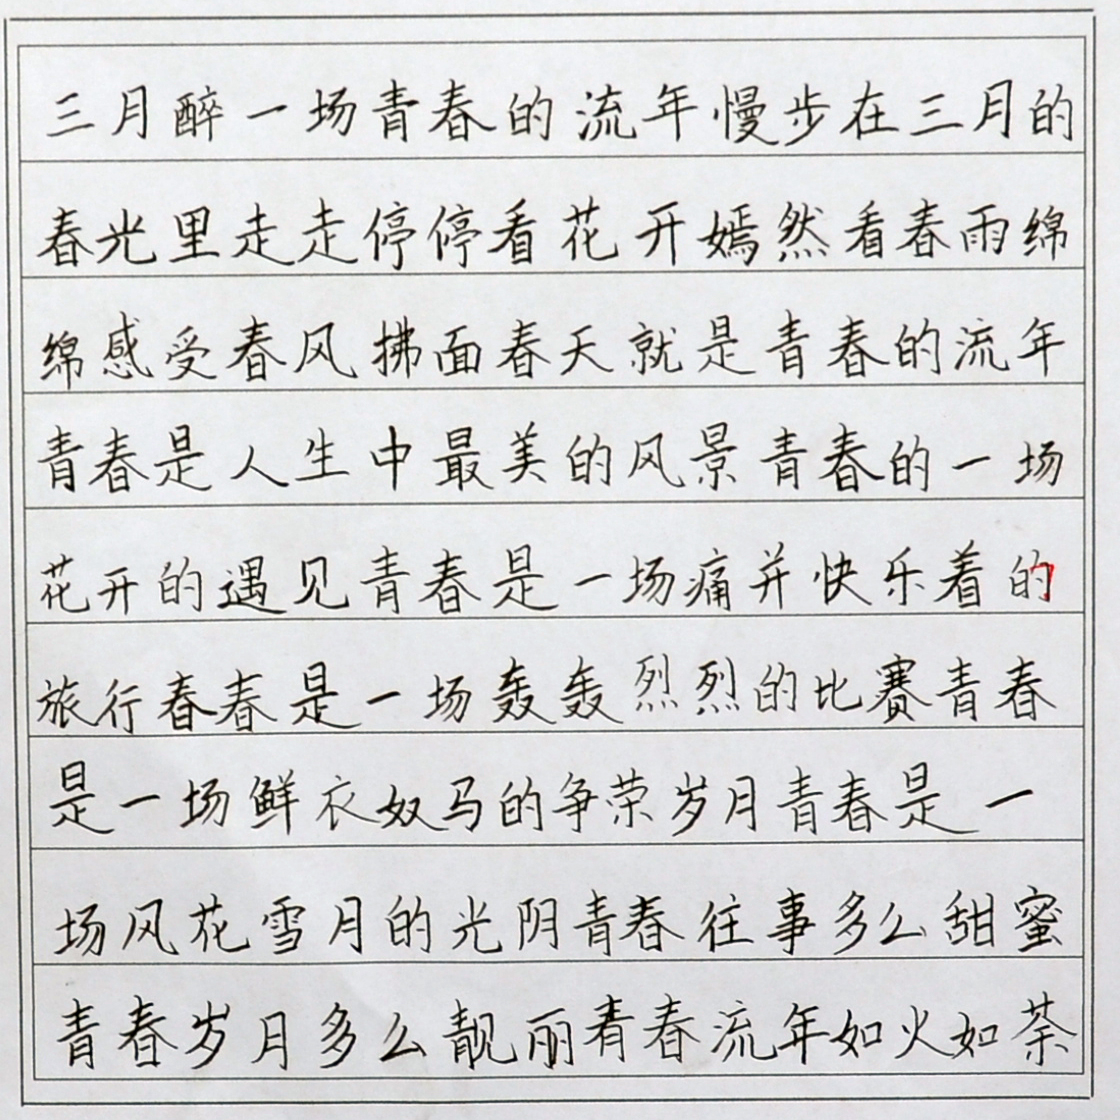 三月醉一场青春的流年慢步在三月的
春光里走走停停看花开嫣然看春雨绵
绵感受春风拂面春天就是青春的流年
青春是人生中最美的风景青春的一场
花开的遇见青春是一场痛并快乐着的
旅行春春是一场轰轰烈烈的比赛青春
是一场鲜衣奴马的争荣岁月青春是一
场风花雪月的光阴青春往事多么甜蜜
青春岁月多么靓丽青春流年如火如荼